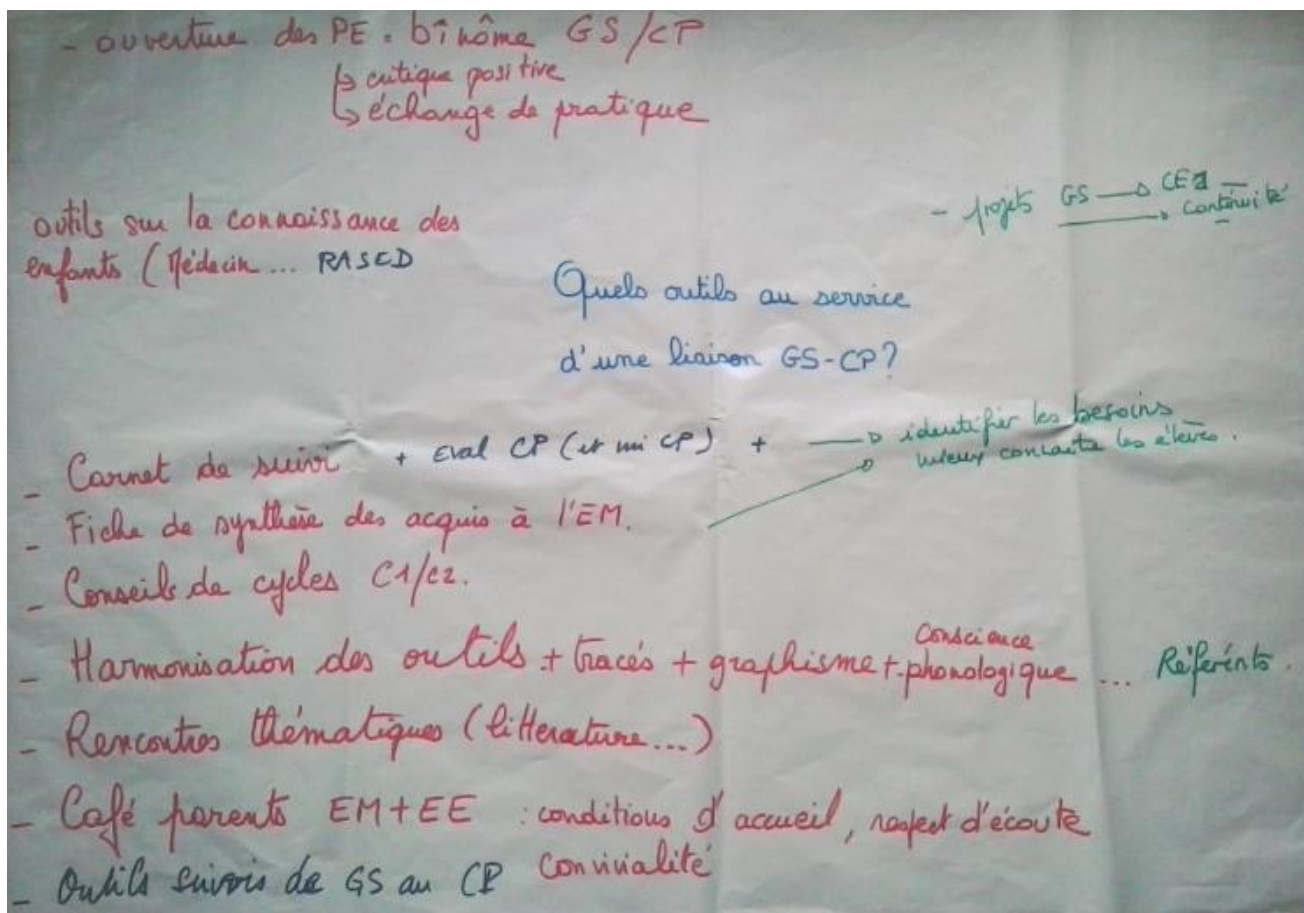 - ouverture des PE : binôme GS/CP
↳ critique positive
↳ échange de pratique
outils sur la connaissance des
enfants (Médecin... RASED
- projets GS → CE1
→ Continuité
Quels outils au service
d'une liaison GS-CP?
- Carnet de suivi + Eval CP (et mi CP) + → identifier les besoins
mieux connaître les élèves.
- Fiche de synthèse des acquis à l'EM.
- Conseils de cycles C1/C2.
- Harmonisation des outils + tracés + graphisme + Conscience phonologique ... Référents.
- Rencontres thématiques (litterature...)
- Café parents EM+EE : conditions d'accueil, respect d'écoute
convivialité
- Outils suivis de GS au CP